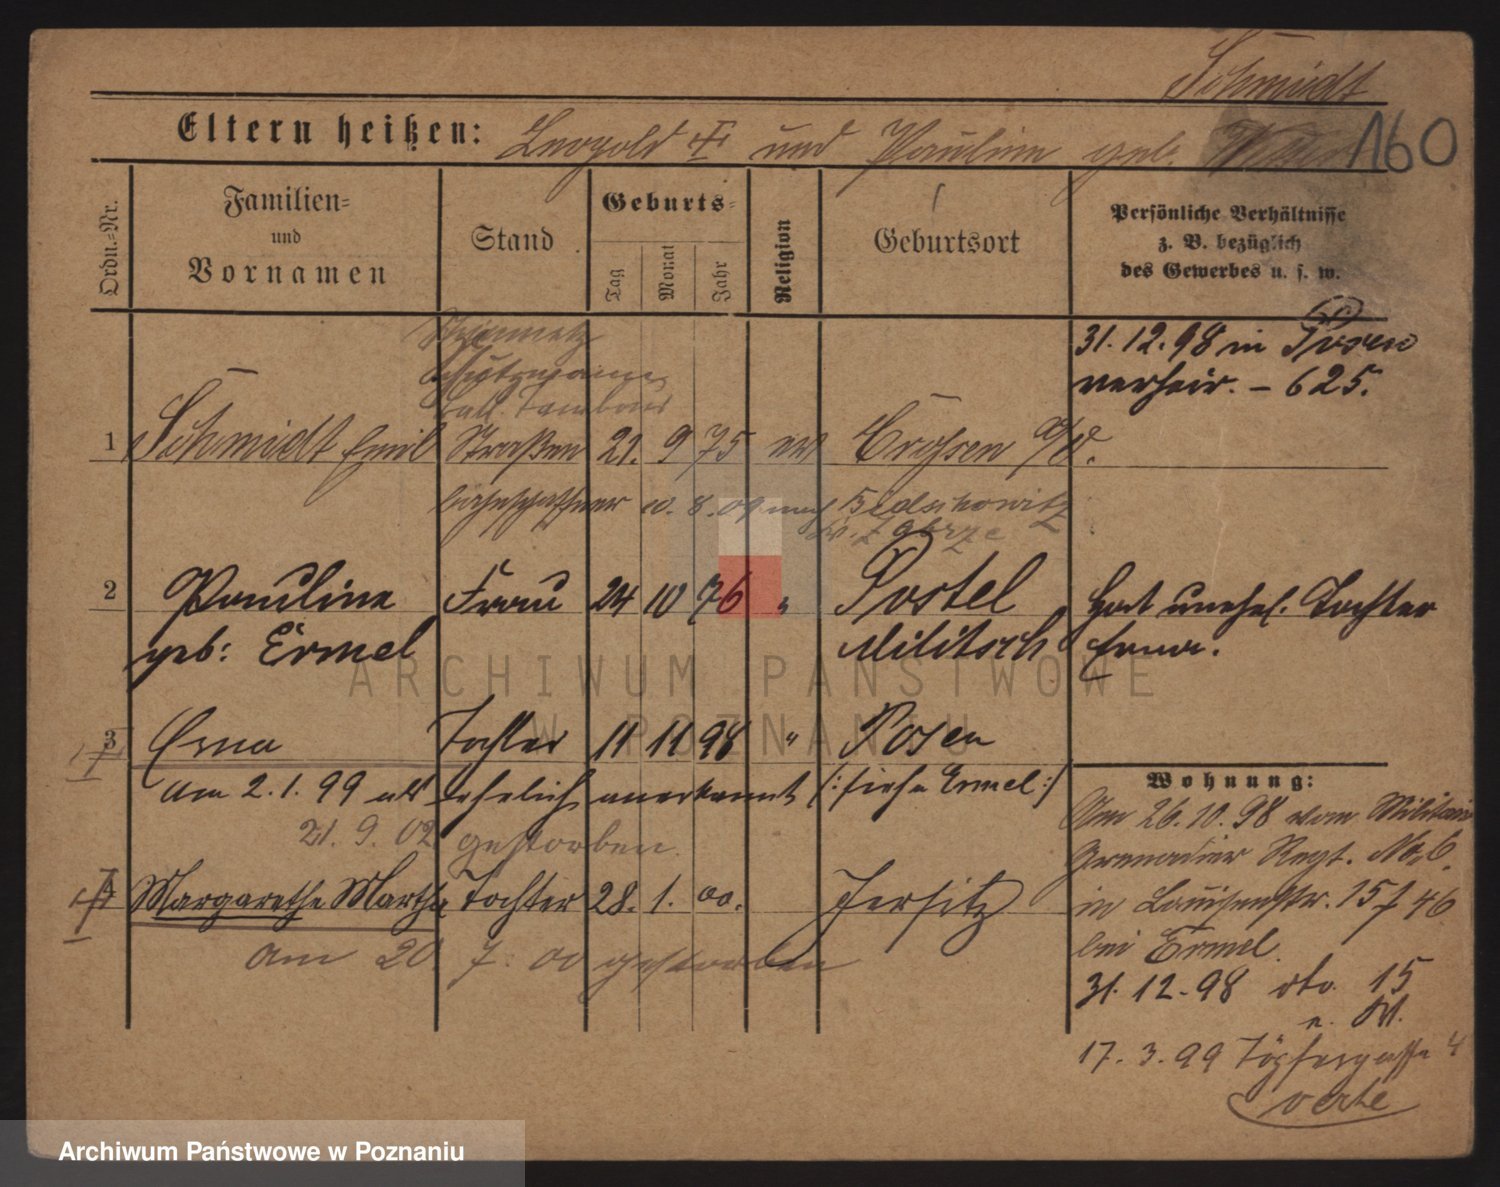 Schmidt
160
Eltern heißen: Leopold † und Pauline geb.
Ordn.-Nr.
Familien-
und
Vornamen
Stand
Geburts-
Tag
Monat
Jahr
Religion
Geburtsort
Persönliche Verhältnisse
z. B. bezüglich
des Gewerbes u. s. w.
31.12.98 in Posen
verheir. – 625.
Schutzmann
1 Schmidt Emil Straßen 21. 9 75 ev Crossen a/O.
w. 8. 04 nach Bielschowitz
Kr. Zabrze
2 Pauline Frau 24 10 76 " Postel
geb: Ermel Militsch
Hat unehel. Tochter
Erna.
3 Erna Tochter 11 11 98 " Posen
Am 2.1.99 als ehelich anerkannt (: siehe Ermel :)
21.9.02 gestorben.
4 Margarethe Martha Tochter 28. 1. 00. Jersitz
am 20. 7. 00 gestorben
Wohnung:
Am 26.10.98 vom Militair
Grenadier Regt. No 6.
in Louisenstr. 15 f 46
bei Ermel.
31.12.98 dto. 15
17.3.99 Töpfergasse 4
verte
ARCHIWUM PAŃSTWOWE
W POZNANIU
Archiwum Państwowe w Poznaniu